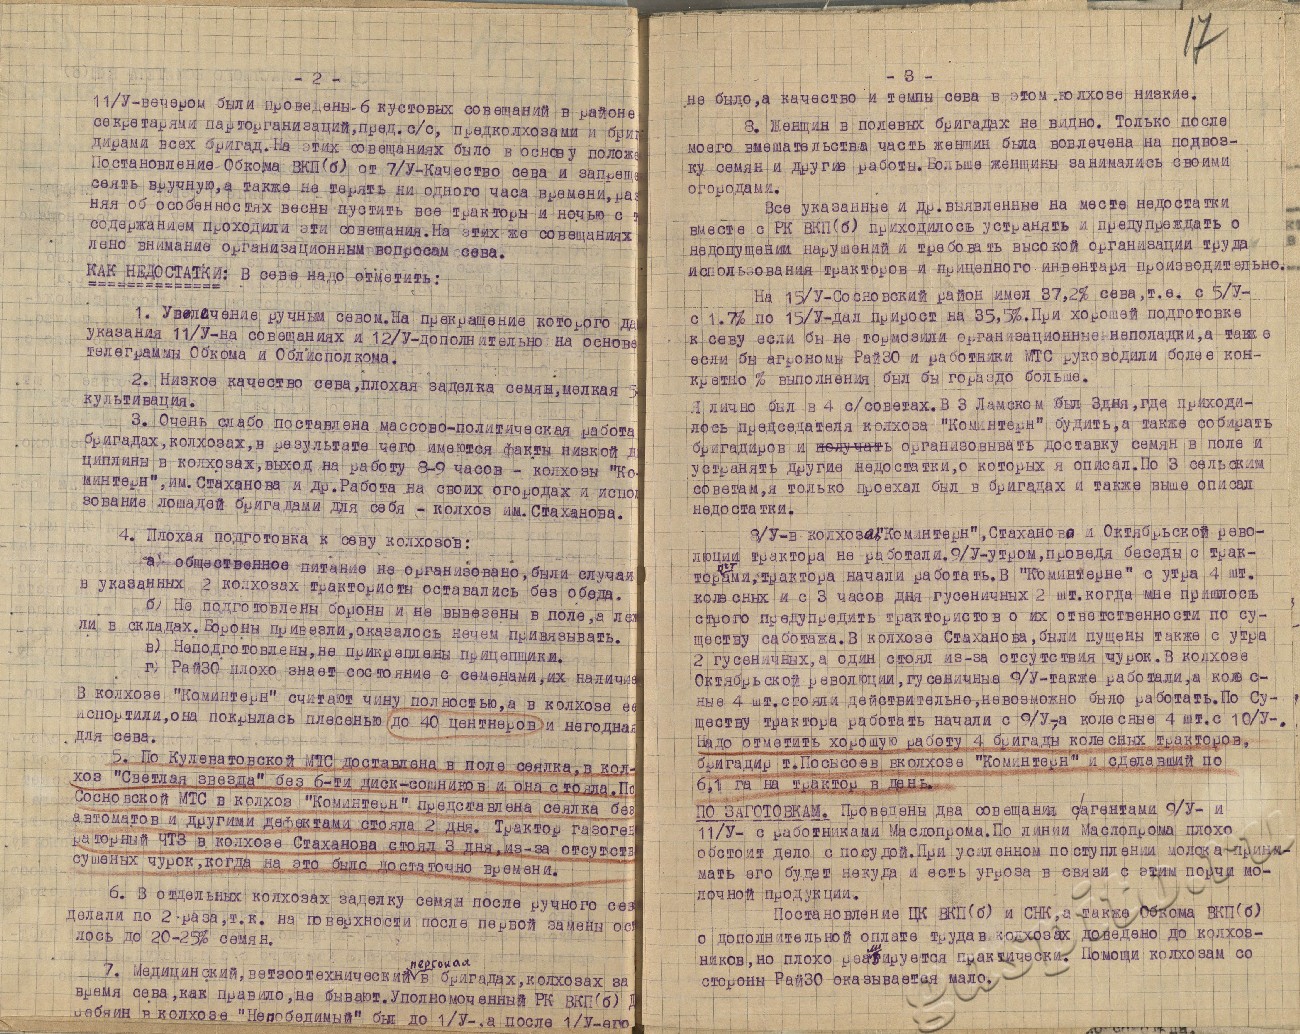 - 2 -
11/У-вечером были проведены 6 кустовых совещаний в районе
секретарями парторганизаций,пред.с/с, предколхозами и бриг
дирами всех бригад.На этих совещаниях было в основу положе
Постановление Обкома ВКП(б) от 7/У-Качество сева и запреще
сеять вручную,а также не терять ни одного часа времени,раз
няя об особенностях весны пустить все тракторы и ночью с т
содержанием проходили эти совещания.На этих же совещаниях
лено внимание организационным вопросам сева.
КАК НЕДОСТАТКИ: В севе надо отметить:
1. Увелечение ручным севом.На прекращение которого да
указания 11/У-на совещаниях и 12/У-дополнительно на основе
телеграммы Обкома и Облисполкома.
2. Низкое качество сева,плохая заделка семян,мелкая
культивация.
3. Очень слабо поставлена массово-политическая работа
бригадах,колхозах,в результате чего имеются факты низкой д
циплины в колхозах,выход на работу 8-9 часов - колхозы "Ко-
минтерн",им.Стаханова и др.Работа на своих огородах и испол
зование лошадей бригадами для себя - колхоз им.Стаханова.
4. Плохая подготовка к севу колхозов:
а) общественное питание не организовано,были случаи
в указанных 2 колхозах трактористы оставались без обеда.
б) Не подготовлены бороны и не вывезены в поле,а леж
ли в складах.Бороны привезли,оказалось нечем привязывать.
в) Неподготовлены,не прикреплены прицепщики.
г) РайЗО плохо знает состояние с семенами,их наличие
В колхозе "Коминтерн" считают чину полностью,а в колхозе ее
испортили,она покрылась плесенью до 40 центнеров и негодная
для сева.
5. По Кулеватовской МТС доставлена в поле сеялка,в кол-
хоз "Светлая звезда" без 6-ти диск-сошников и она стояла.По
Сосновской МТС в колхоз "Коминтерн" представлена сеялка без
автоматов и другими дефектами стояла 2 дня. Трактор газоген
раторный ЧТЗ в колхозе Стаханова стоял 3 дня,из-за отсутств
сушеных чурок,когда на это было достаточно времени.
6. В отдельных колхозах заделку семян после ручного сев
делали по 2 раза,т.к. на поверхности после первой замены ост
лось до 20-25% семян.
7. Медицинский,ветзоотехнический персонал в бригадах,колхозах за
время сева,как правило,не бывают.Уполномоченный РК ВКП(б)
ребяин в колхозе "Непобедимый" был до 1/У-.а после 1/У-его
17
- 3 -
не было,а качество и темпы сева в этом колхозе низкие.
8. Женщин в полевых бригадах не видно. Только после
моего вмешательства часть женщин была вовлечена на подвоз-
ку семян и другие работы.Больше женщины занимались своими
огородами.
Все указанные и др.выявленные на месте недостатки
вместе с РК ВКП(б) приходилось устранять и предупреждать о
недопущении нарушений и требовать высокой организации труда
использования тракторов и прицепного инвентаря производительно.
На 15/У-Сосновский район имел 37,2% сева,т.е. с 5/У-
с 1.7% по 15/У-дал прирост на 35,5%.При хорошей подготовке
к севу если бы не тормозили организационные неполадки,а также
если бы агрономы РайЗО и работники МТС руководили более кон-
кретно % выполнения был бы гораздо больше.
Я лично был в 4 с/советах.В 3 Ламском был 3дня,где приходи-
лось председателя колхоза "Коминтерн" будить,а также собирать
бригадиров и получать организовывать доставку семян в поле и
устранять другие недостатки,о которых я описал.По 3 сельским
советам,я только проехал был в бригадах и также выше описал
недостатки.
8/У-в колхозах "Коминтерн",Стаханова и Октябрьской рево-
люции трактора не работали.9/У-утром,проведя беседы с трак-
тористами,трактора начали работать.В "Коминтерне" с утра 4 шт.
колесных и с 3 часов дня гусеничных 2 шт.когда мне пришлось
строго предупредить трактористов о их ответственности по су-
ществу саботажа.В колхозе Стаханова,были пущены также с утра
2 гусеничных,а один стоял из-за отсутствия чурок.В колхозе
Октябрьской революции,гусеничные 9/У-также работали,а колес-
ные 4 шт.стояли действительно,невозможно было работать.По Су-
ществу трактора работать начали с 9/У-,а колесные 4 шт.с 10/У-.
Надо отметить хорошую работу 4 бригады колесных тракторов,
бригадир т.Посысоев вколхозе "Коминтерн" и сделавший по
6,1 га на трактор в день.
ПО ЗАГОТОВКАМ. Проведены два совещания с/агентами 9/У- и
11/У- с работниками Маслопрома.По линии Маслопрома плохо
обстоит дело с посудой.При усиленном поступлении молока прини-
мать его будет некуда и есть угроза в связи с этим порчи мо-
лочной продукции.
Постановление ЦК ВКП(б) и СНК,а также Обкома ВКП(б)
о дополнительной оплате труда в колхозах доведено до колхоз-
ников,но плохо реализируется практически. Помощи колхозам со
стороны РайЗО оказывается мало.